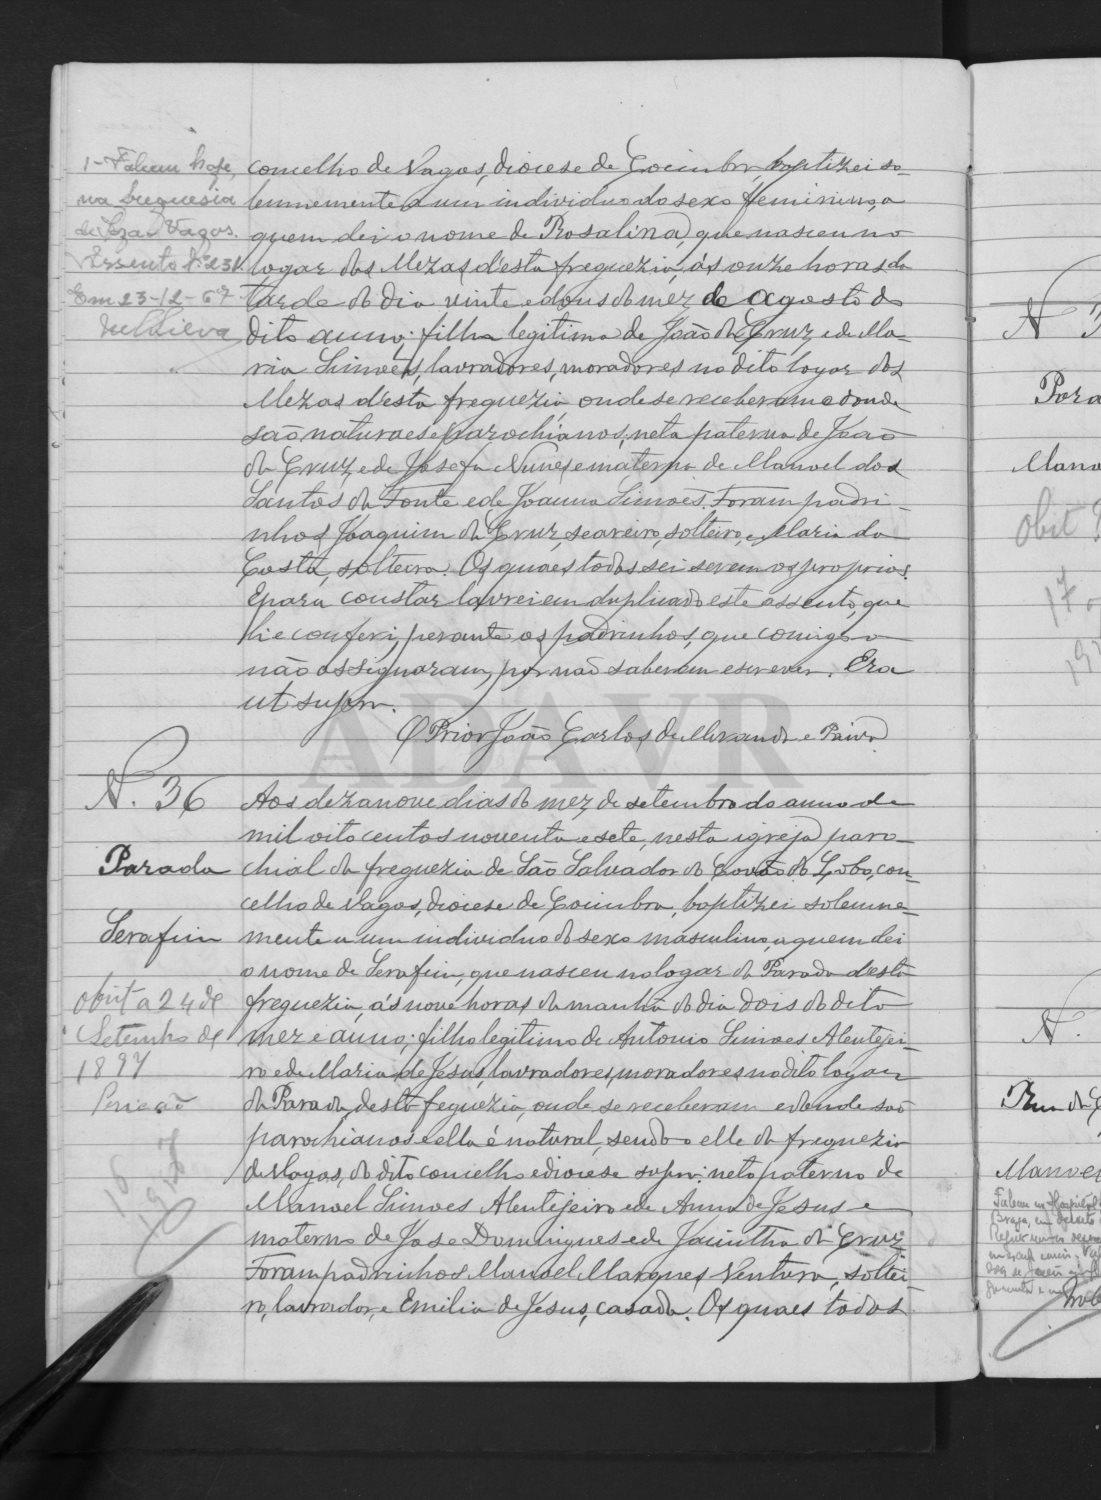 1 - Faleceu hoje,
na freguesia
de Soza - Vagos.
Assento nº 231
Em 23-12-67
concelho de Vagos, diocese de Coimbra, baptizei so-
lemnemente a um individuo do sexo feminino, a
quem dei o nome de Rosalina, que nasceu no
logar das Mezas d'esta freguezia, ás onze horas da
tarde do dia vinte e dous do mez de agosto do
dito anno; filha legitima de João da Cruz e de Ma-
ria Simoes, lavradores, moradores no dito logar das
Mezas d'esta freguezia onde se receberam e donde
são naturaes e parochianos; neta paterna de João
da Cruz, e de Josefa Nunes e materna de Manoel dos
Santos da Fonte e de Joanna Simoes. Foram padri-
nhos Joaquim da Cruz, seareiro, solteiro, e Maria da
Costa, solteira. Os quaes todos sei serem os proprios.
E para constar lavrei em duplicado este assento, que
li e conferi, perante os padrinhos, que comigo
não assignaram, por não saberem escrever. Era
ut supra.
O Prior João Carlos de Miranda e Paiva
N. 36
Parada
Serafim
obiit a 24 de
Setembro de
1897
Aos dezanove dias do mez de setembro do anno de
mil oito centos noventa e sete, nesta igreja paro-
chial da freguezia de São Salvador do Covão do Lobo, con-
celho de Vagos, diocese de Coimbra, baptizei solemne-
mente a um individuo do sexo masculino, a quem dei
o nome de Serafim, que nasceu no logar da Parada d'esta
freguezia, ás nove horas da manhã do dia dois do dito
mez e anno; filho legitimo de Antonio Simoes Alentejei-
ro e de Maria de Jesus, lavradores, moradores no dito logar
da Parada, desta feguezia, onde se receberam e donde são
parochianos e ella é natural, sendo elle da freguezia
de Vagos, do dito concelho e diocese supra; neto paterno de
Manoel Simoes Alentejeiro e de Anna de Jesus e
materno de Jose Domingues e de Jacintha da Cruz.
Foram padrinhos Manoel Marques Ventura, soltei-
ro, lavrador, e Emilia de Jesus, casada. Os quaes todos
ADAVR
N
Para
Mano
Obiit
17
N.
Manoel